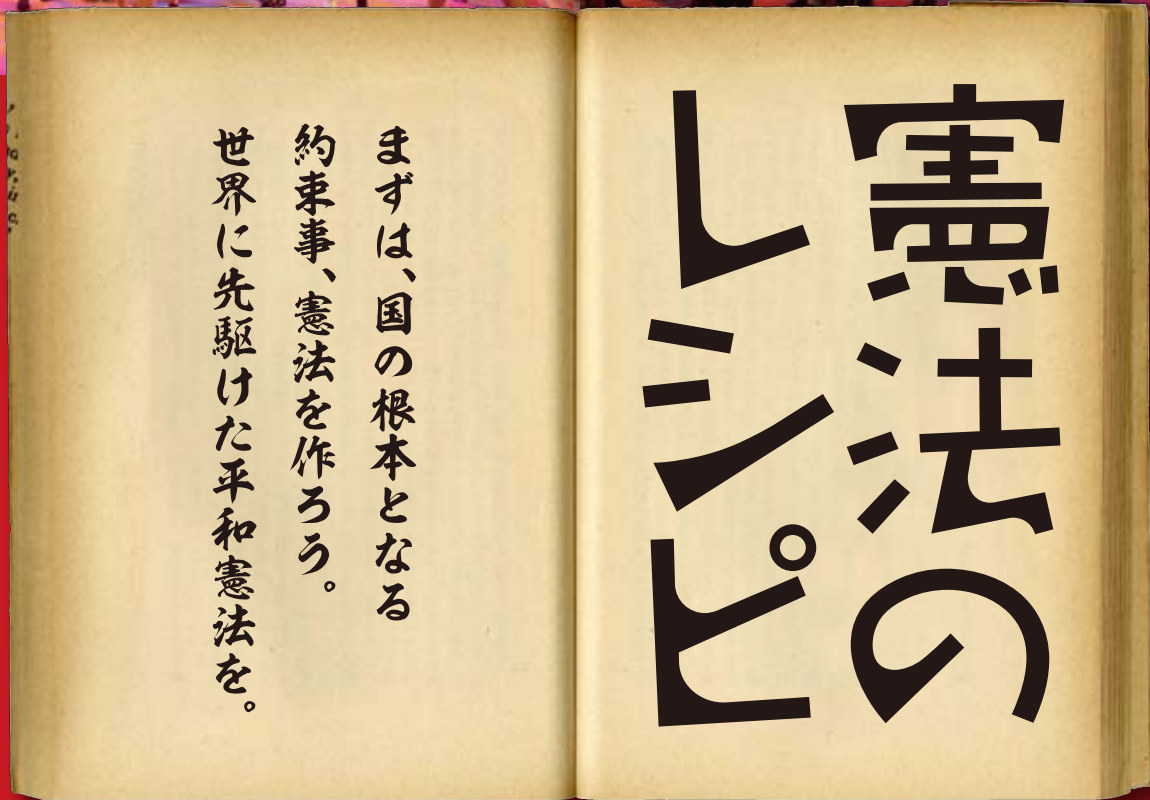 憲法の
レシピ
まずは、国の根本となる
約束事、憲法を作ろう。
世界に先駆けた平和憲法を。